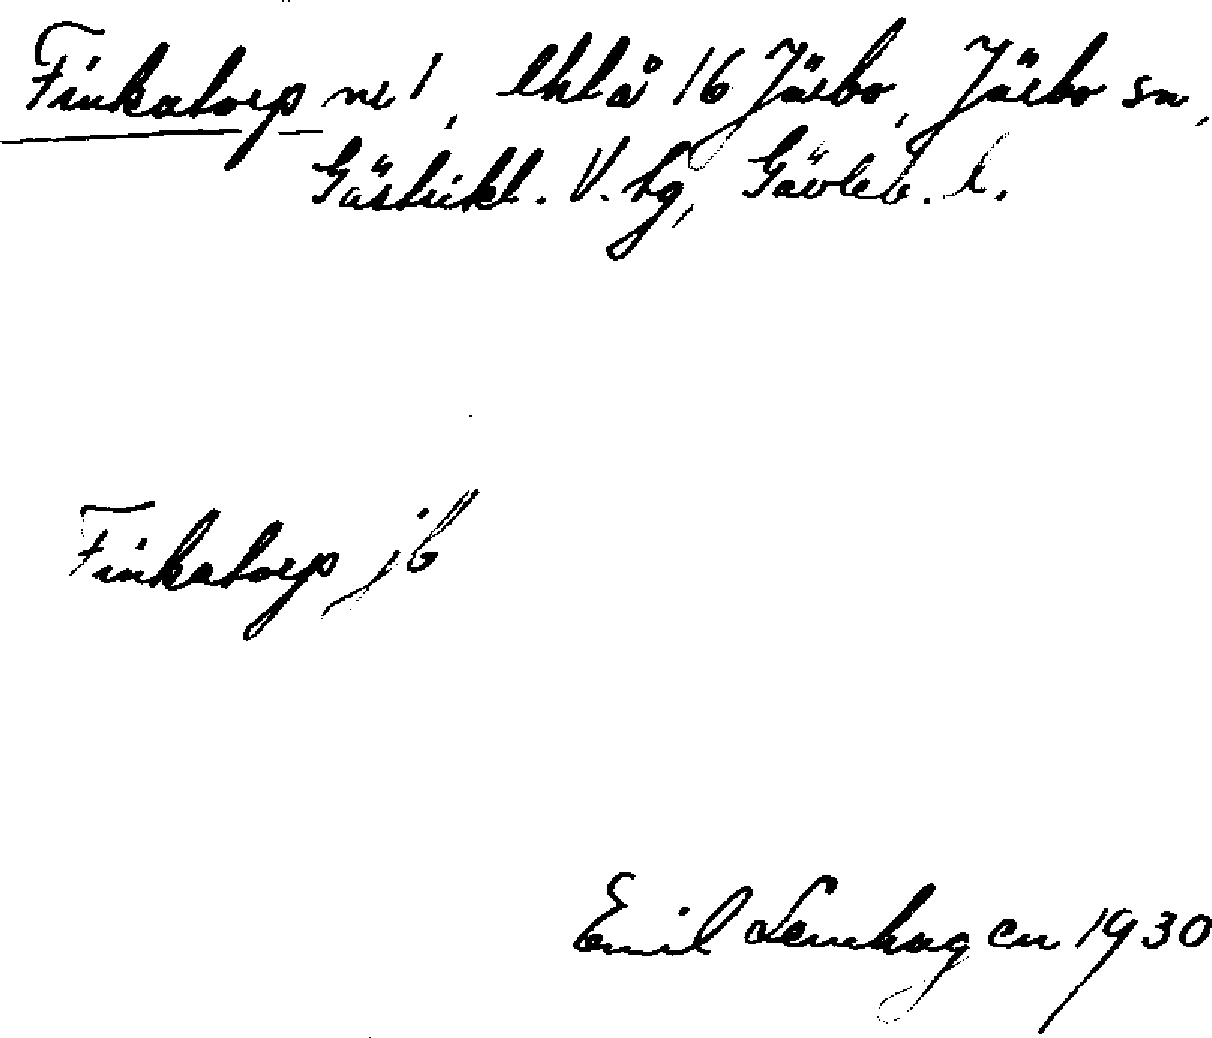 Finkatorp nr 1, lhtå 16 Järbo, Järbo sn,
Gästrikl. V. hg, Gävleb. l.
Finkatorp jb
Emil Lenhagen 1930